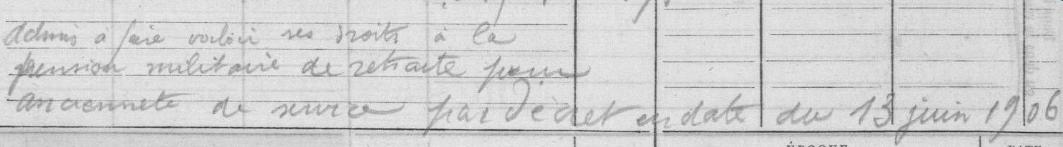 Admis à faire valoir ses droits à la
pension militaire de retraite pour
ancienneté de service par décret en date du 13 juin 1906